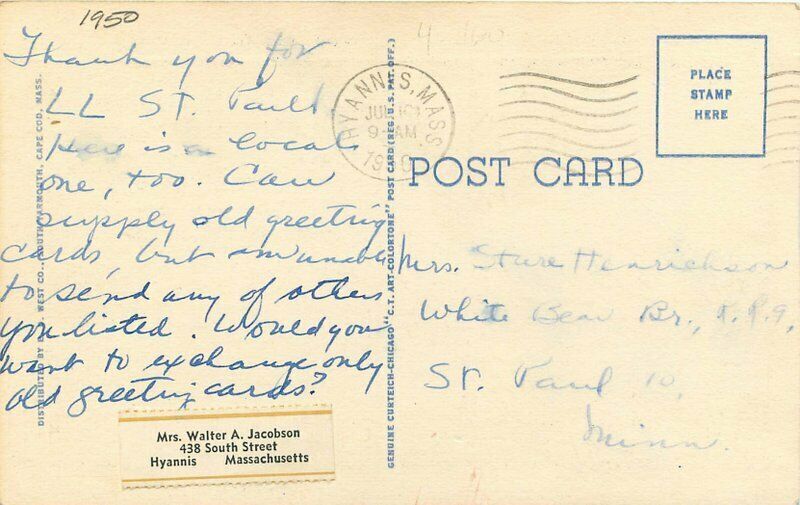 1950
Thank you for
LL St. Paul!
Here is a local
one, too. Can
supply old greeting
cards, but am unable
to send any of others
you listed. Would you
want to exchange only
old greeting cards?
Mrs. Walter A. Jacobson
438 South Street
Hyannis Massachusetts
DISTRIBUTED BY WEST CO., SOUTH YARMOUTH, CAPE COD, MASS.
GENUINE CURTEICH-CHICAGO "C.T. ART-COLORTONE" POST CARD (REG. U.S. PAT. OFF.)
HYANNIS, MASS
AM
PLACE
STAMP
HERE
POST CARD
Mrs. Sture Henrickson
White Bear Br., R.R.9,
St. Paul 10,
Minn.